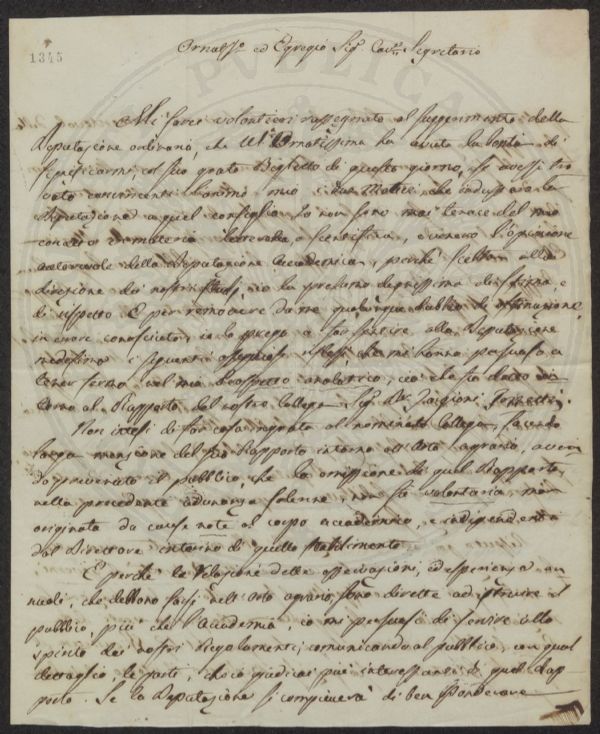 1345
Ornat.mo ed Egregio Sig.r Cav.r Segretario
Mi sarei volontieri rassegnato al suggerimento della
Deputazione ordinaria, che V. S. Ornatissima ha avuto la bontà di
significarmi, col suo grato Biglietto di questo giorno, se avessi tro
vato convincenti l'animo mio i due Motivi, che indussero la
Deputazione a quel consiglio. Io non sono mai tenace del mio
in materia letteraria, e scientifica, e venero l'opinione
autorevole della Deputazione Accademica, perchè scelta alla
direzione dei nostri studj, io la prestamo di stima, e
di rispetto. E per removere da me qualunque dubbio di ostinazione
in cuore conosciuto, io la prego a far sentire alla Deputazione
medesima i seguenti ossequiosi riflessi che mi hanno persuaso a
tener fermo nel mio Prospetto analitico, ciò che ho detto in-
torno al Rapporto del nostro Collega Sig.r D.r
Non intesi di far cosa ingrata al nominato Collega, facendo
larga menzione del suo Rapporto intorno all'Orto agrario, aven
do prevenuto il pubblico, che la omissione di quel Rapporto,
nella precedente adunanza solenne, non fù volontaria, ma
originata da cause note al corpo accademico, e indipendenti
dal Direttore interino di quello stabilimento.
E perchè la Relazione delle osservazioni, ed esperienze an
nuali, che debbono farsi nell'Orto agrario, sono dirette ad istruire il
pubblico, più che l'Accademia, io mi persuasi di servire allo
spirito dei nostri Regolamenti, comunicando al pubblico, con qual
dettaglio, le parti, ch'io giudicai più interessanti di quel Rap
porto. Se la Deputazione si compiacerà di ben ponderare